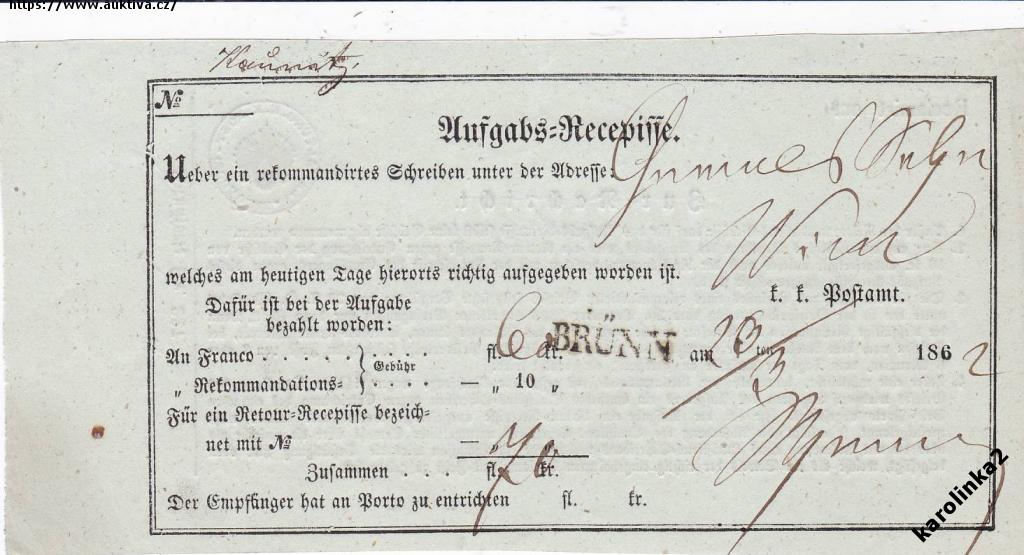 https://www.auktiva.cz/
No
Aufgabs-Recepisse.
Ueber ein rekommandirtes Schreiben unter der Adresse:
welches am heutigen Tage hierorts richtig aufgegeben worden ist.
k. k. Postamt.
Dafür ist bei der Aufgabe
bezahlt worden:
An Franco . . . . . . . . . . fl. kr. BRÜNN am 23 ten 3 1862
„ Rekommandations= Gebühr . . . . — „ 10 „
Für ein Retour-Recepisse bezeich=
net mit No —
Zusammen . . . fl. kr.
Der Empfänger hat an Porto zu entrichten fl. kr.
karolinka2